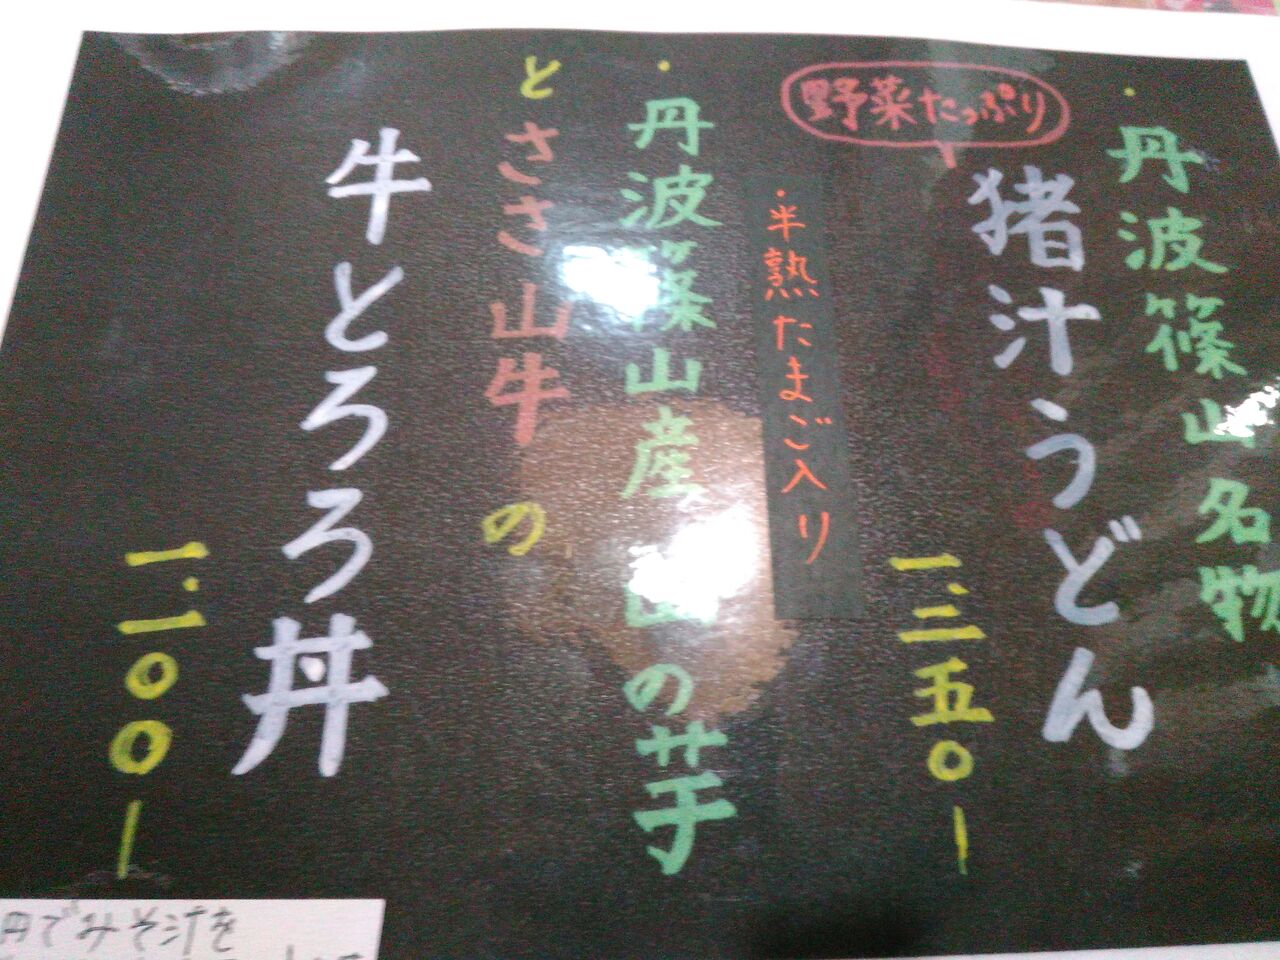 ・丹波篠山名物
野菜たっぷり
猪汁うどん
一、三五〇ー
・半熟たまご入り
・丹波篠山産 山の芋
とささ山牛の
牛とろろ丼
一、一〇〇ー
円でみそ汁を